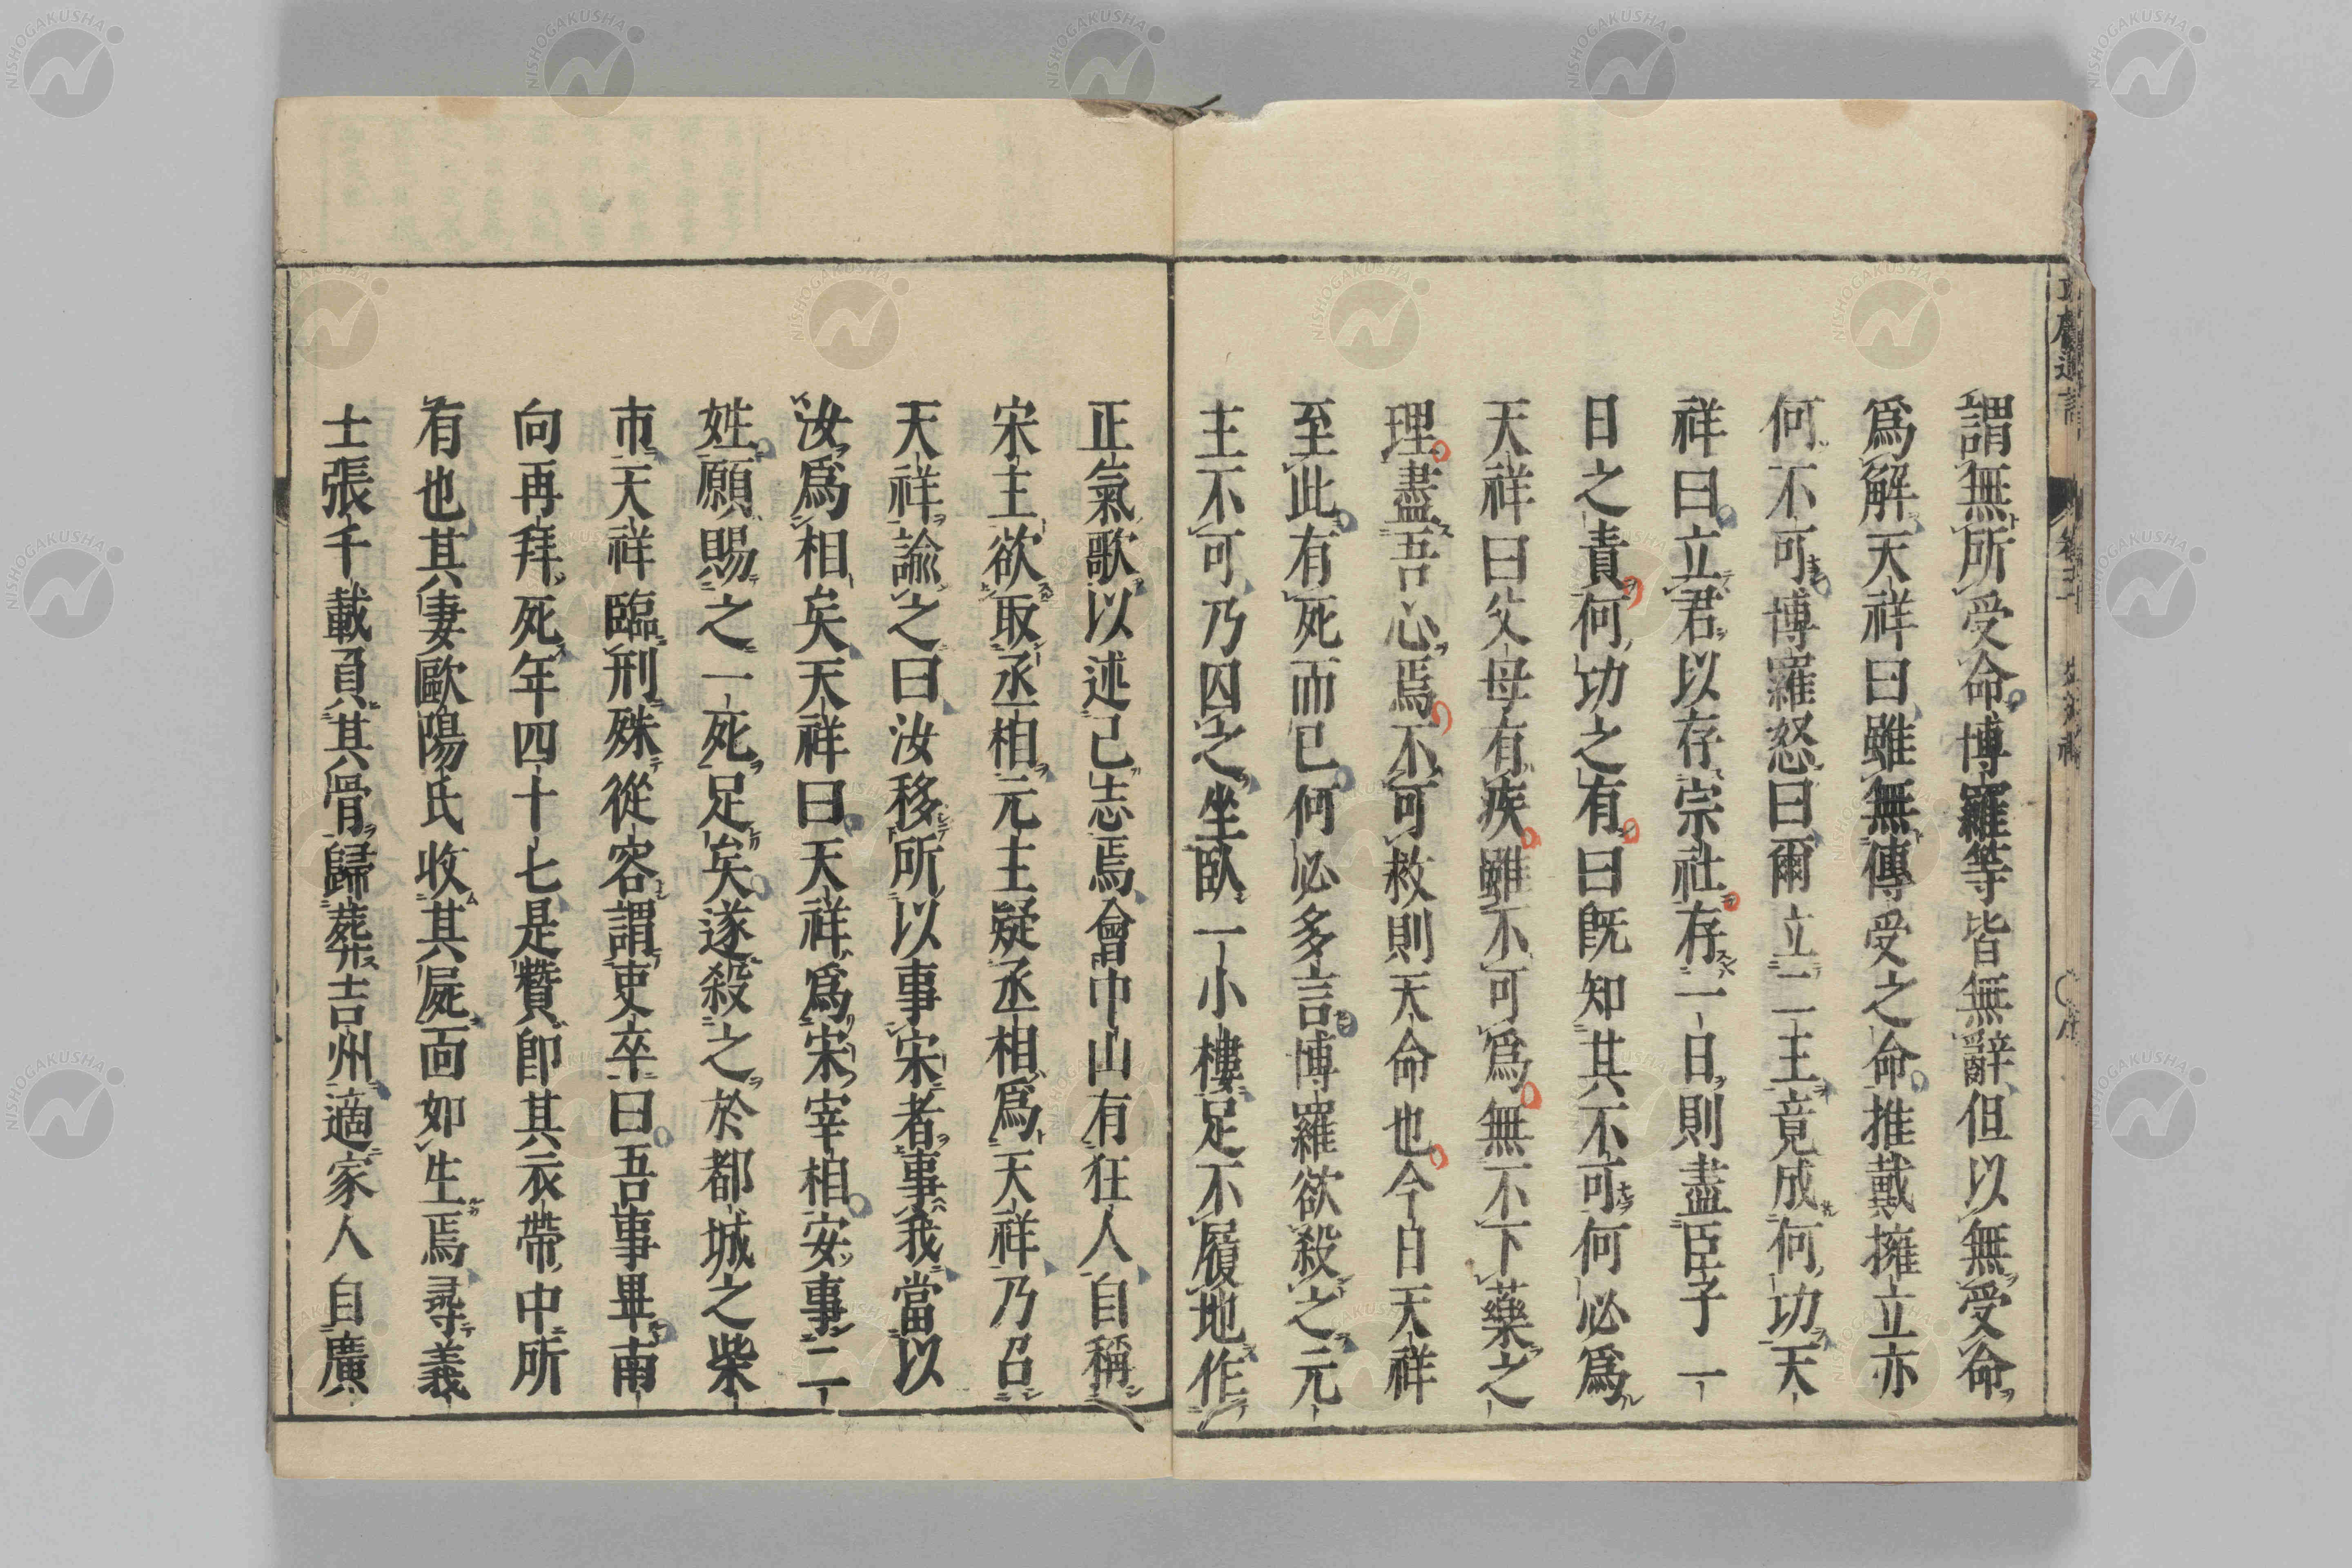 謂無所受命博羅等皆無辭但以無受命
爲解天祥曰雖無傳受之命推戴擁立亦
何不可博羅怒曰爾立二王竟成何功天
祥曰立君以存宗社存一日則盡臣子一
日之責何功之有曰既知其不可何必爲
天祥曰父母有疾雖不可爲無不下藥之
理盡吾心焉不可救則天命也今日天祥
至此有死而已何必多言博羅欲殺之元
主不可乃囚之坐臥一小樓足不履地作
正氣歌以述己志焉會中山有狂人自稱
宋主欲取丞相元主疑丞相爲天祥乃召
天祥諭之曰汝移所以事宋者事我當以
汝爲相矣天祥曰天祥爲宋宰相安事二
姓願賜之一死足矣遂殺之於都城之柴
市天祥臨刑殊從容謂吏卒曰吾事畢南
向再拜死年四十七是贊卽其衣帶中所
有也其妻歐陽氏收其屍面如生焉尋義
士張千載負其骨歸葬吉州適家人自廣
NISHOGAKUSHA